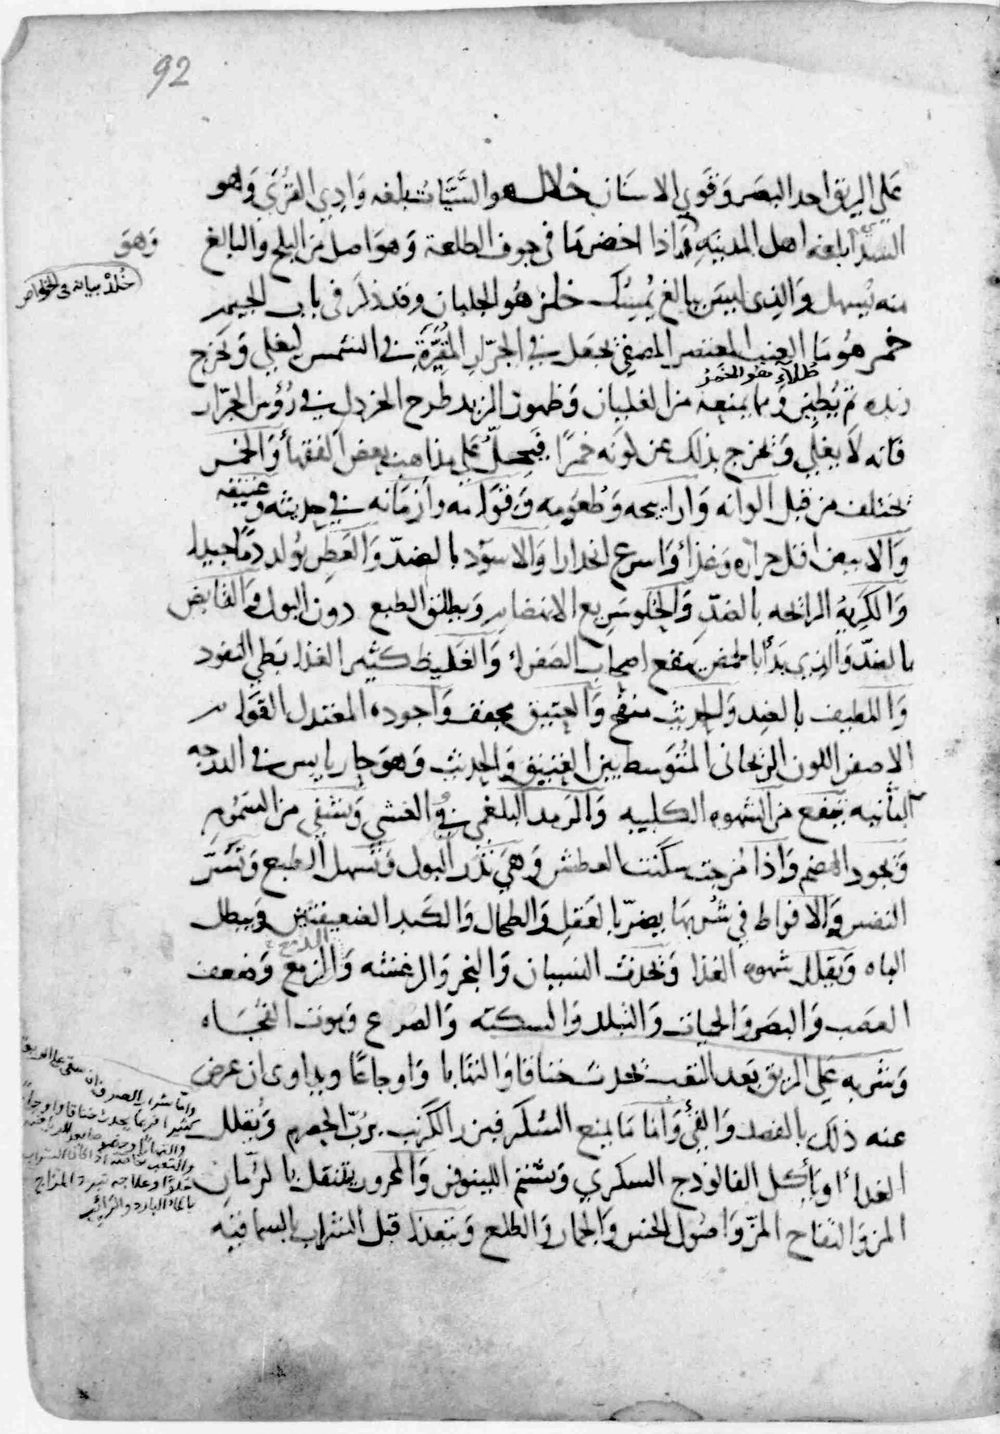 92
على الريق احد البصر وقوي الاسنان خلال هو السَّيَّاب بلغه وادي القرى وهو
السدا بلغه اهل المدينه واذا اخضر ما في جوف الطلعة وهو اصل من البلح والبالغ
وهو
خُلْدْ بيانه في الخواص
منه يُسهل والذي ليس ببالغ يُمسك خلز هو الجلبان وقد ذكر في باب الجيم
خمر هو ما العنب المعتصر المصفى يجعل في الجرار المُقَيَّرة في الشمس ليغلي ويخرج
طلآء هو الخمر
زبده ثم يُطين ومما يمنعه من الغليان وظهور الزبد طرح الخردل في رؤس الجرار
فانه لا يغلي ويخرج بذلك عن كونه خمرًا فيحلّ على مذاهب بعض الفقهأ والخمر
تختلف من قبل الوانه واراييحه وطعومه وقوامه وازمانه في حديثه وعتيقه
والابيض اقل حراره وغذأ واسرع انحدارا والاسود بالضدّ والعطر يولد دمًا جيدا
والكريه الرائحه بالضدّ والحلو سريع الانهضام ويطلق الطبع دون البول والقابض
بالضدّ والذي بدأ بالحمض ينفع اصحاب الصفرأ والغليظ كثير الغذا بطي النفود
واللطيف بالضد والحديث منفخ والعتيق يجفف واجوده المعتدل القوام
الاصفر اللون الريحاني المُتوسط بين العتيق والحديث وهو حار يابس في الدرجه
الثانيه ينفع من الشهوه الكلبيه والرمد البلغمي والغشي ويشفي من السموم
ويجود الهضم واذا مُزجت سكنت العطش وهي تدر البول وتسهل الطبع وتسُرَّ
النفس والافراط في شربها يضرّ بالعقل والطحال والكبد الضعيفتين ويبطل
الباه ويقلل شهوه الغذا ويحدث النسيان والبخر والرعشه والربع وضعف
العصب والبصر والحميات والتبلد والسكته والصرع وموت الفجأه
وشربه على الريق بعد التعب يحدث خناقا والتهابا واوجاعًا ويداوى ان عرض
عنه ذلك بالفصد والقئ واما ما يمنع السكر فبزر الكرنب برُبّ الحصرم ويُقلل
الغدا او ياكل الفالوذج السكري ويشتم اللينوفر والمحرور يتنقل بالرّمان
المز والتفاح المزّ واصول الخس والجمار والطلع ويتغذا قبل الشراب بالسماقيه
وامّا شراب الصرف ان سقي على الريق
كثيرا فربما يحدث خناقا واوجاعًا